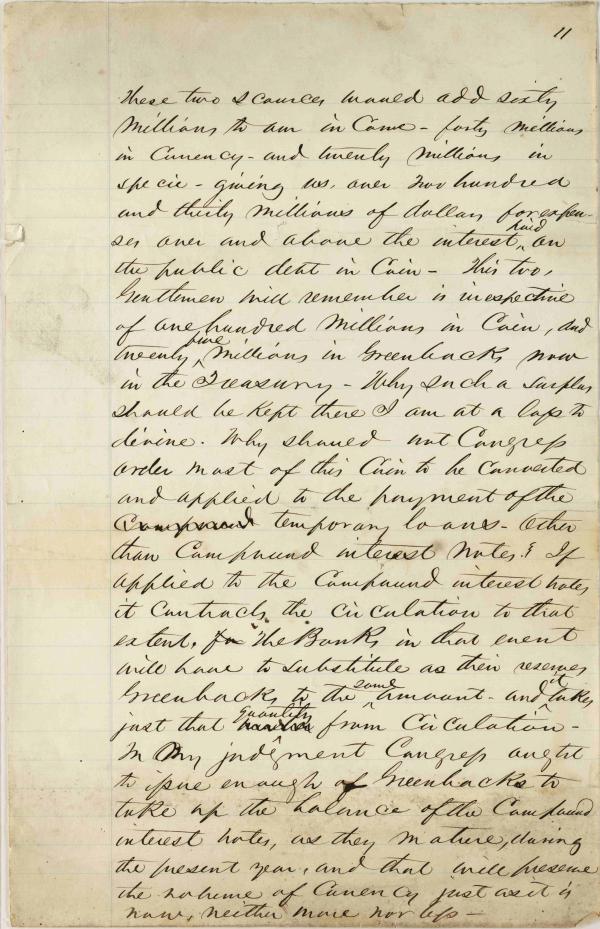 11
these two scources would add sixty
Millions to our in Come - forty millions
in Currency - and twenty Millions in
specie - giving us, over Two hundred
and thirty Millions of dollars for expen-
ses over and above the interest paid on
the public debt in Coin - This two,
Gentlemen will remember is irrespective
of one hundred Millions in Coin, and
twenty five Millions in Greenbacks now
in the Treasury - Why such a surplus
should be kept there I am at a loss to
divine. Why should not Congress
order most of this Coin to be Converted
and applied to the payment of the
Compound temporary loans - other
than Compound interest Notes? If
applied to the Compound interest notes
it Contracts the Circulation to that
extent. for The Banks in that event
will have to substitute as their reserves
Greenbacks to the same amount - and it takes
just that quantity from Circulation -
In My judgment Congress ought
to issue enough of Greenbacks to
take up the balance of the Compound
interest notes, as they mature, during
the present year, and that will preserve
the volume of Currency just as it is
now, neither more nor less -